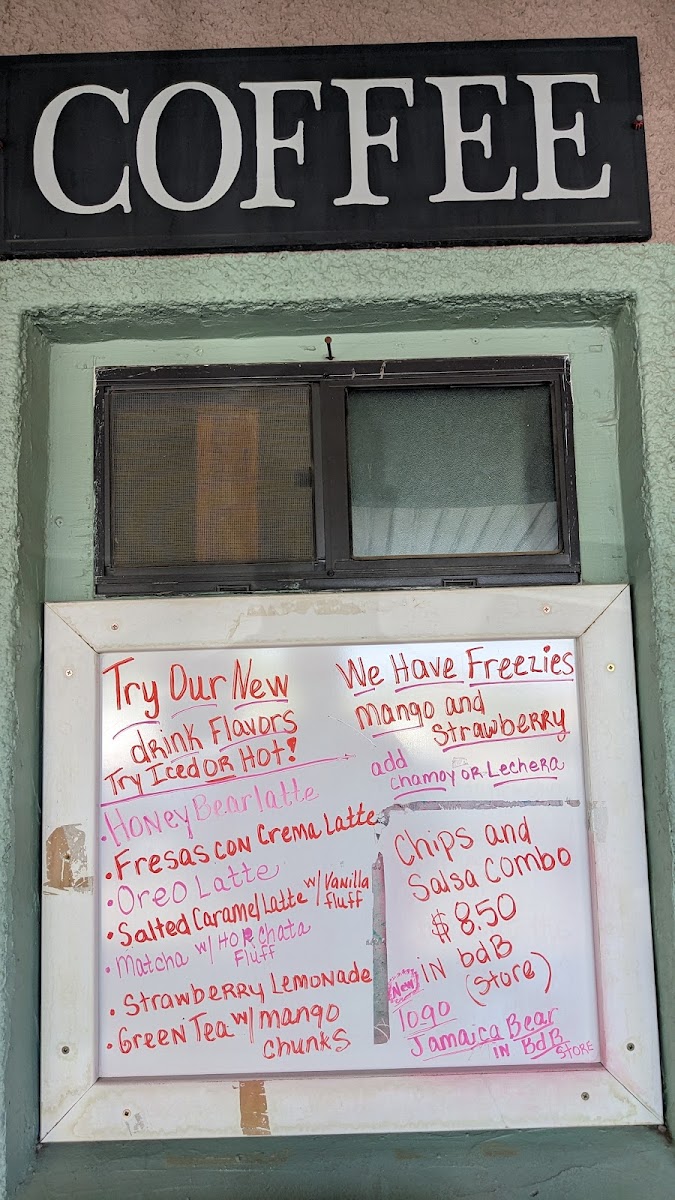 COFFEE
Try Our New
drink Flavors
Try Iced OR Hot!
• Honey Bear latte
• Fresas con Crema Latte
• Oreo Latte
• Salted Caramel Latte w/ Vanilla
fluff
• Matcha w/ Horchata
Fluff
• Strawberry Lemonade
• Green Tea w/ mango
chunks
We Have Freezies
mango and
Strawberry
add
chamoy OR Lechera
Chips and
Salsa Combo
$8.50
IN bdB
(store)
New
Jamaica Bear
IN BdB
STORE